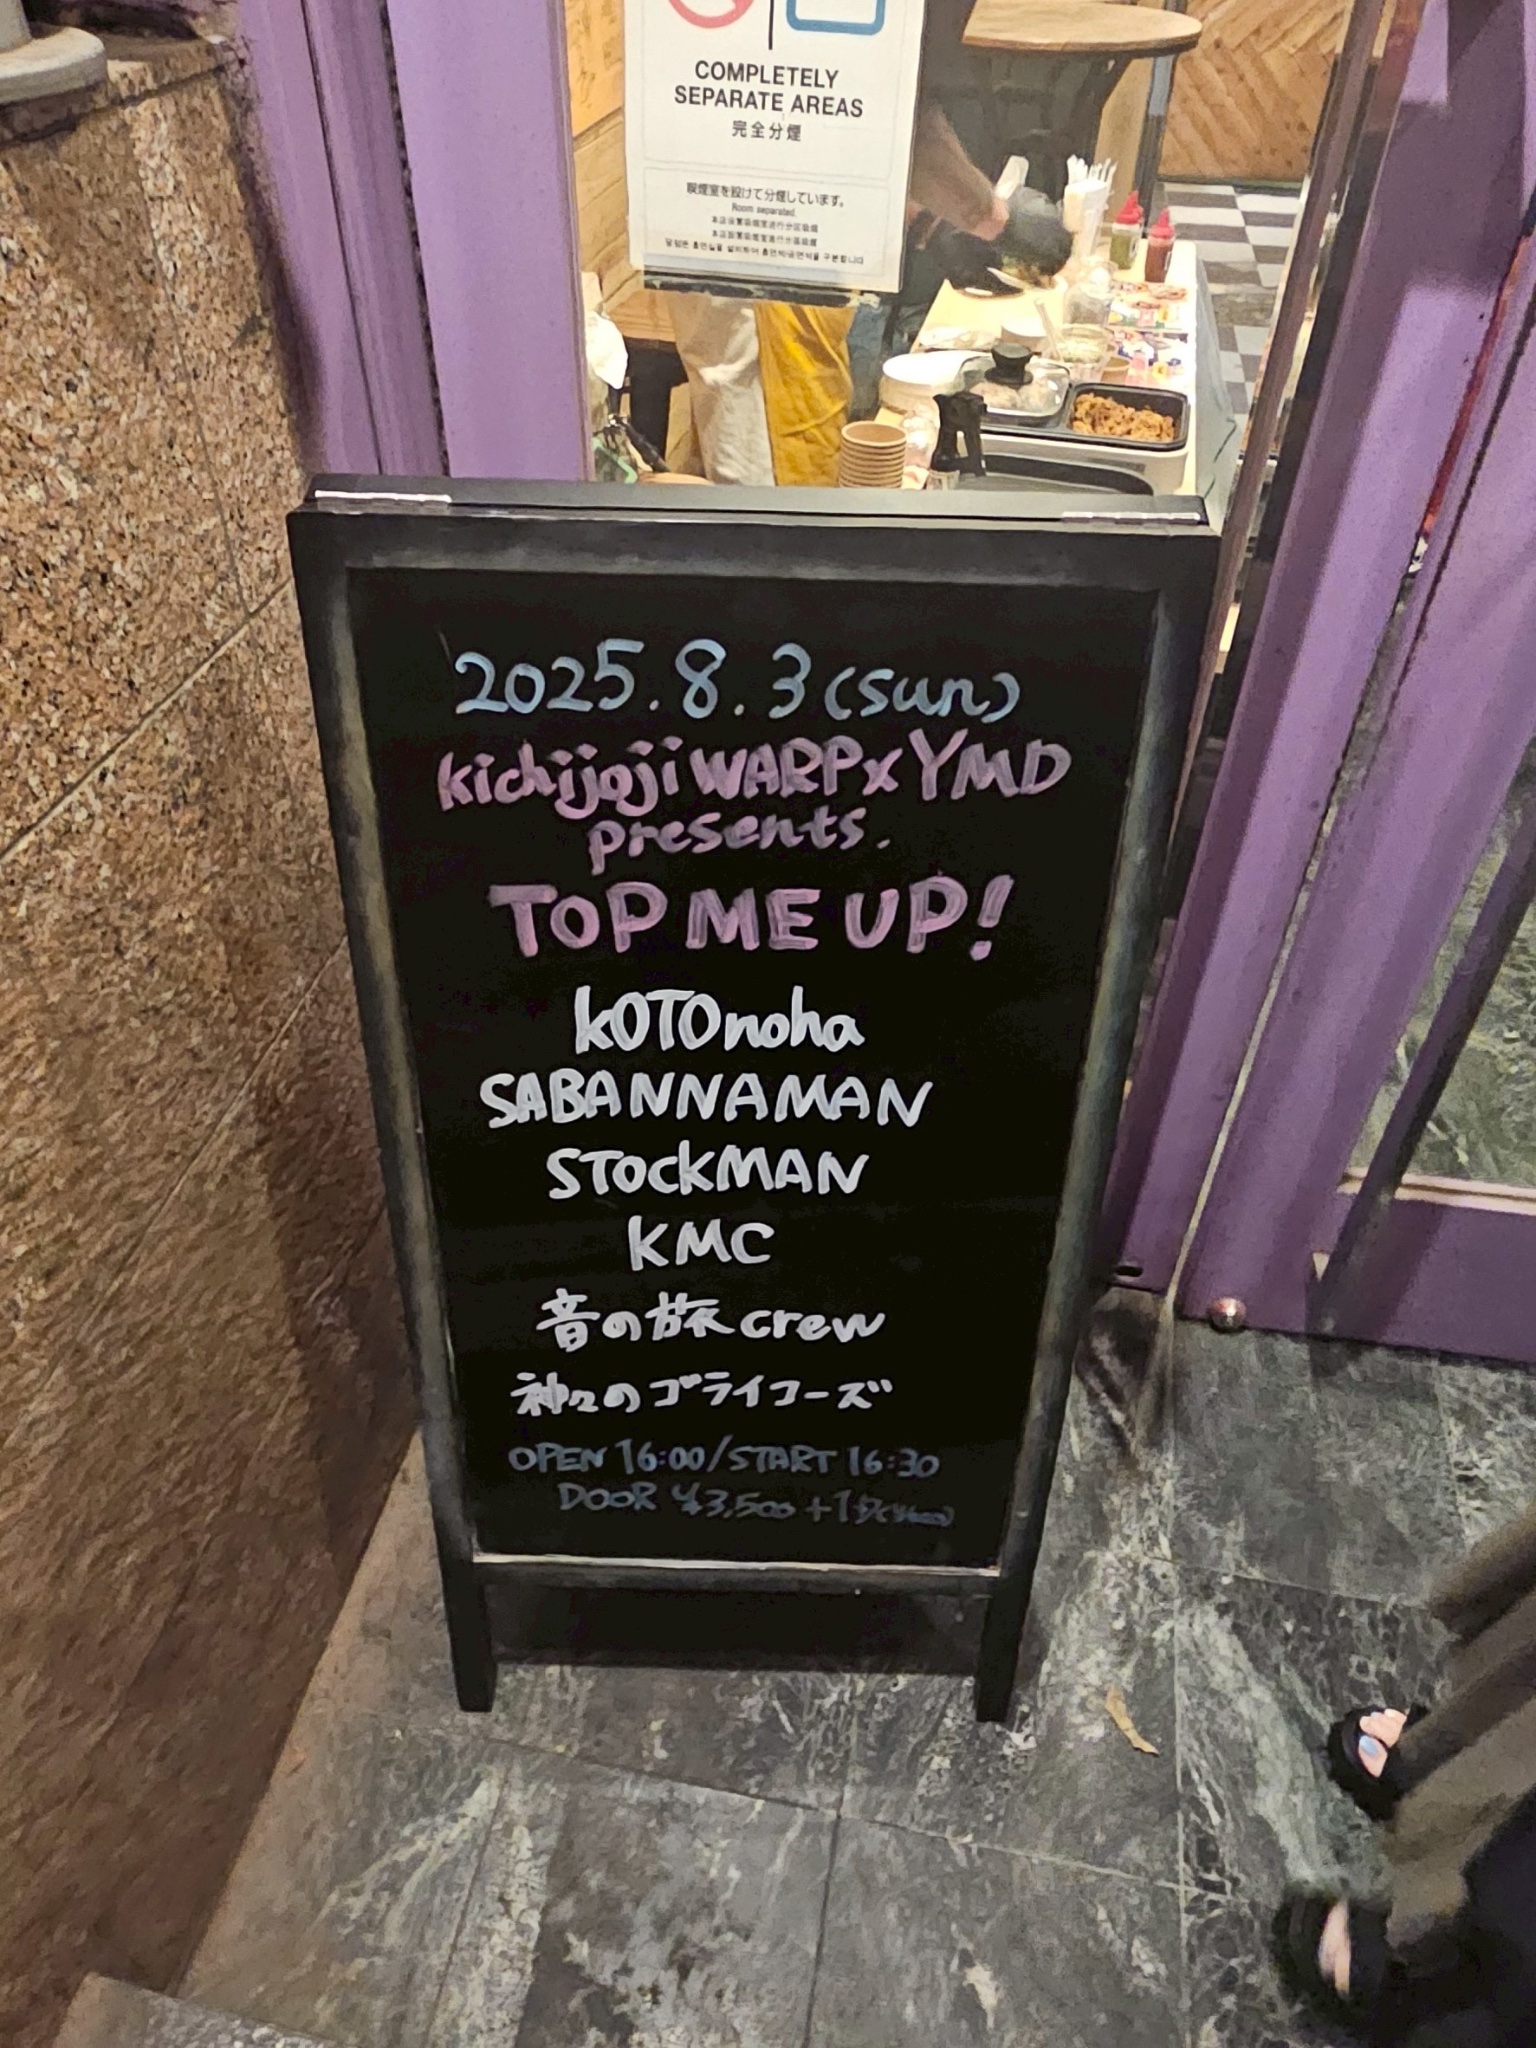 COMPLETELY
SEPARATE AREAS
完全分煙
喫煙室を設けて分煙しています。
Room separated.
2025.8.3(sun)
kichijoji WARP x YMD
presents.
TOP ME UP!
kOTOnoha
SABANNAMAN
STOCKMAN
KMC
音の旅crew
神々のゴライコーズ
OPEN 16:00/START 16:30
DOOR ¥3,500+1D